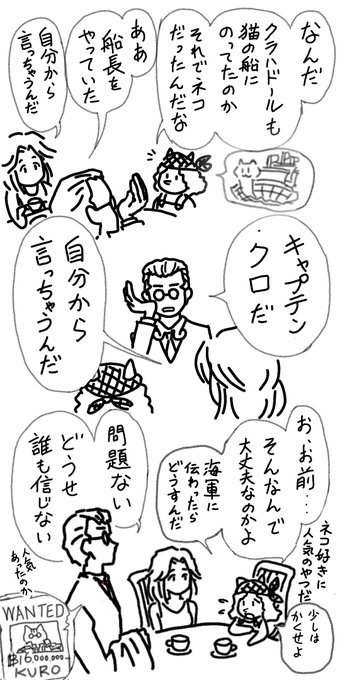 なんだ
クラハドールも
猫の船に
のってたのか
それでネコ
だったんだな
ああ
船長を
やっていた
自分から
言っちゃうんだ
キャプテン
クロだ
自分から
言っちゃうんだ
お、お前…
そんなんで
大丈夫なのかよ
海軍に
伝わったら
どうすんだ
問題ない
どうせ
誰も信じない
ネコ好きに
人気のやつだ
少しは
かくせよ
人気
あったのか
WANTED
฿16,000,000
KURO